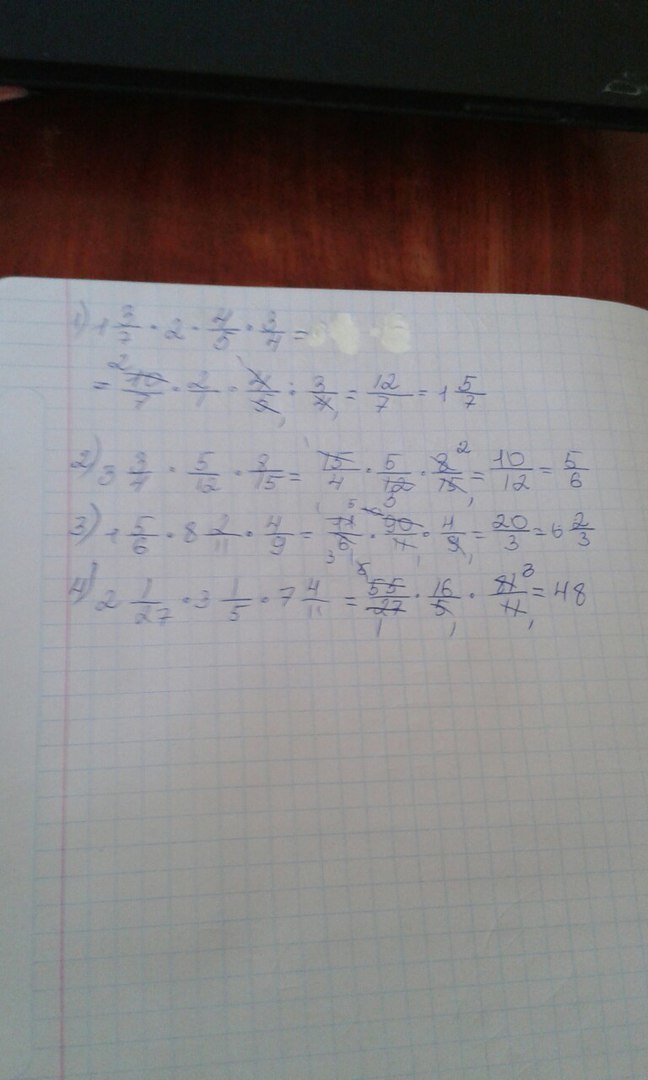 1) 1 3/7 · 2 · 4/5 · 3/4 =
= 10/7 · 2/1 · 4/5 · 3/4 = 12/7 = 1 5/7
2) 3 3/4 · 5/12 · 8/15 = 15/4 · 5/12 · 8/15 = 10/12 = 5/6
3) 1 5/6 · 8 2/11 · 4/9 = 11/6 · 90/11 · 4/9 = 20/3 = 6 2/3
4) 2 1/27 · 3 1/5 · 7 4/11 = 55/27 · 16/5 · 81/11 = 48